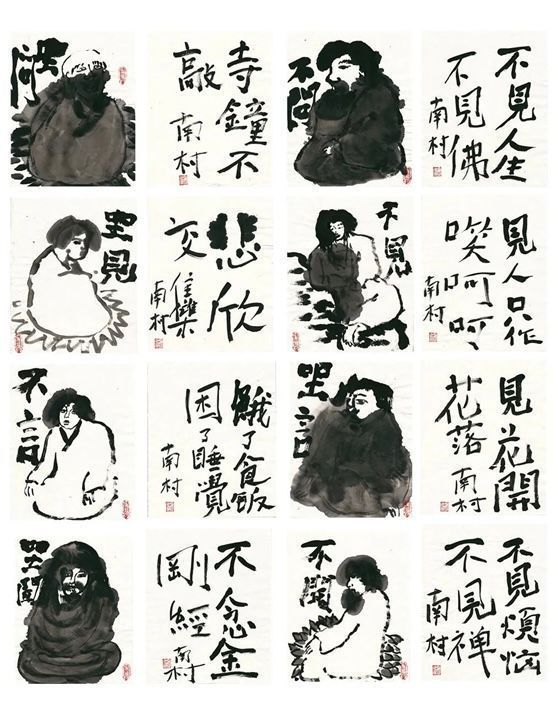 坐問
寺鐘不
敲
南村
不問
不見人生
不見佛
南村
坐見
悲欣
交集
南村
不見
見人只作
咲呵呵
南村
不言
餓了食飯
困了睡覺
南村
坐言
見花開
花落
南村
坐聞
不念金
剛經
南村
不聞
不見煩惱
不見禪
南村